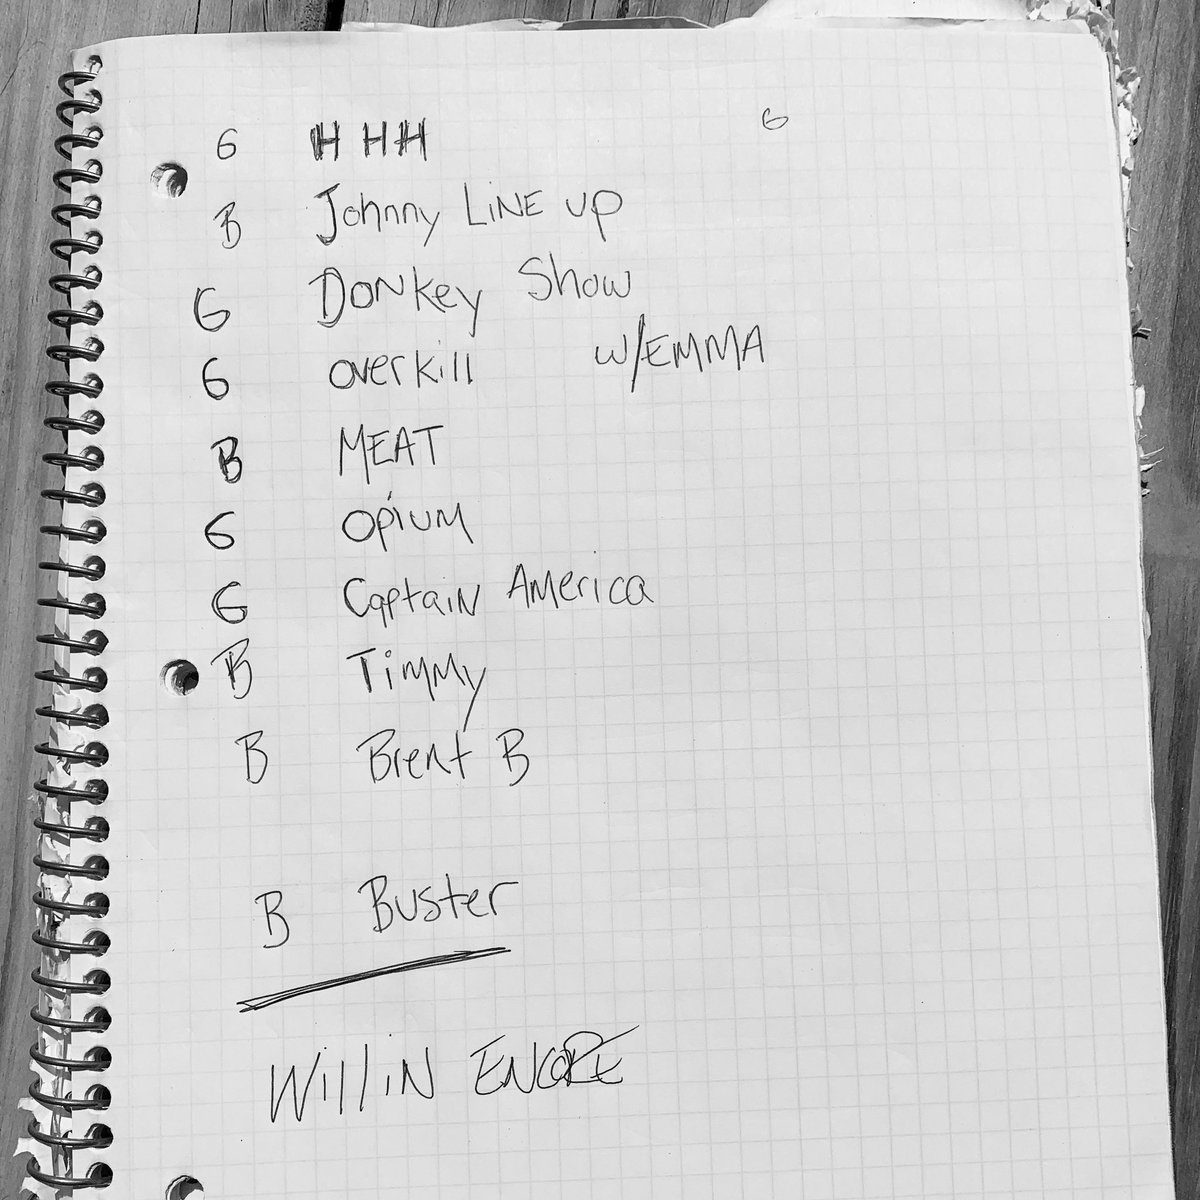 G HHH G
B Johnny LiNE up
G DONkey Show
G overkill w/EMMA
B MEAT
G OpiUM
G Captain America
B Timmy
B Brent B
B Buster
Willin ENCORE